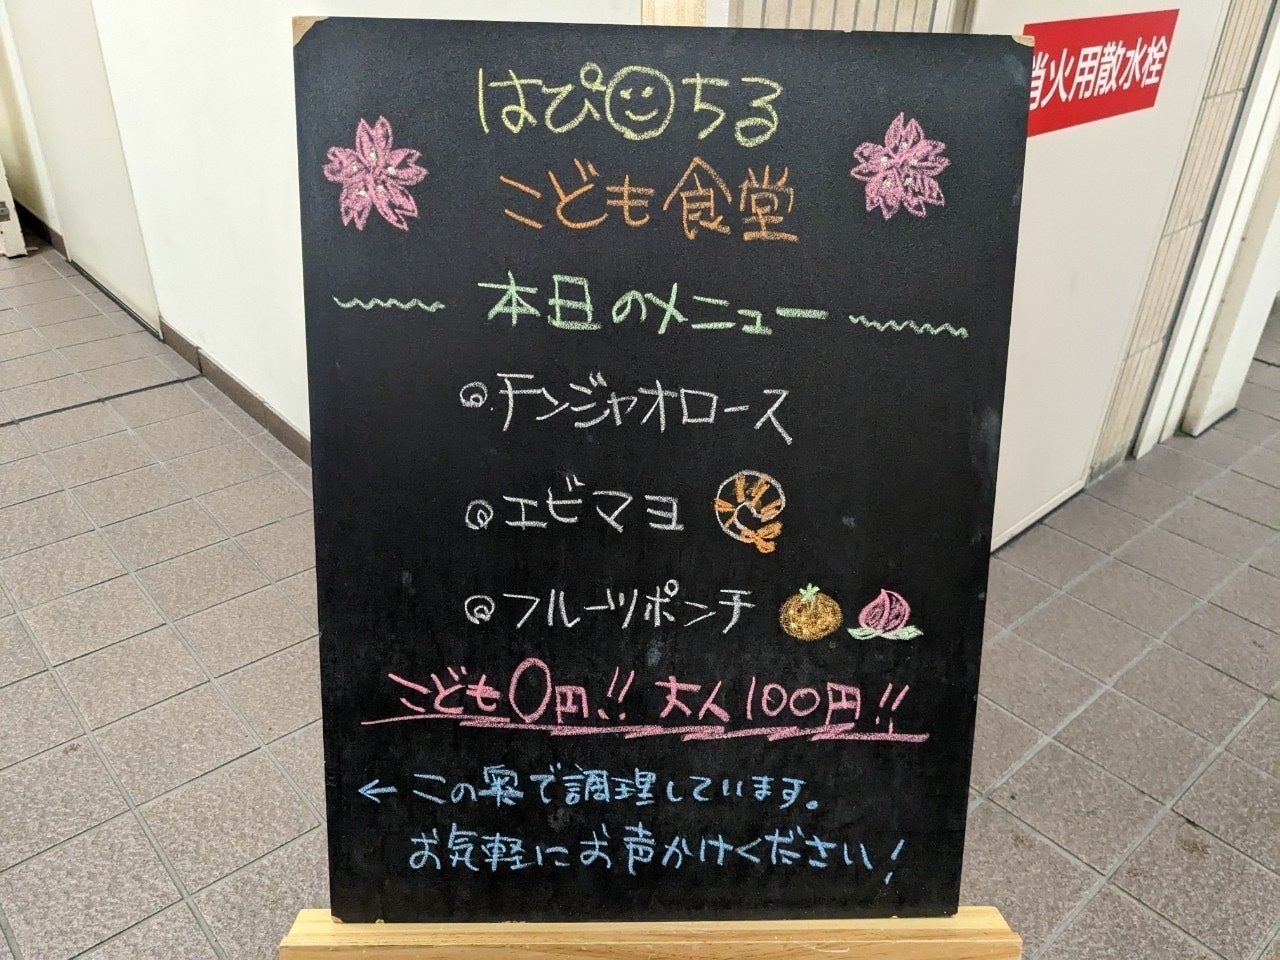 はぴちる
こども食堂
本日のメニュー
チンジャオロース
エビマヨ
フルーツポンチ
こども0円!! 大人100円!!
← この奥で調理しています。
お気軽にお声かけください!
消火用散水栓